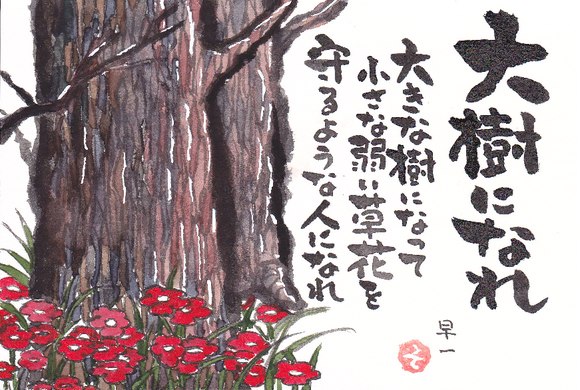 大樹になれ
大きな樹になって
小さな弱い草花を
守るような人になれ
早一
そ